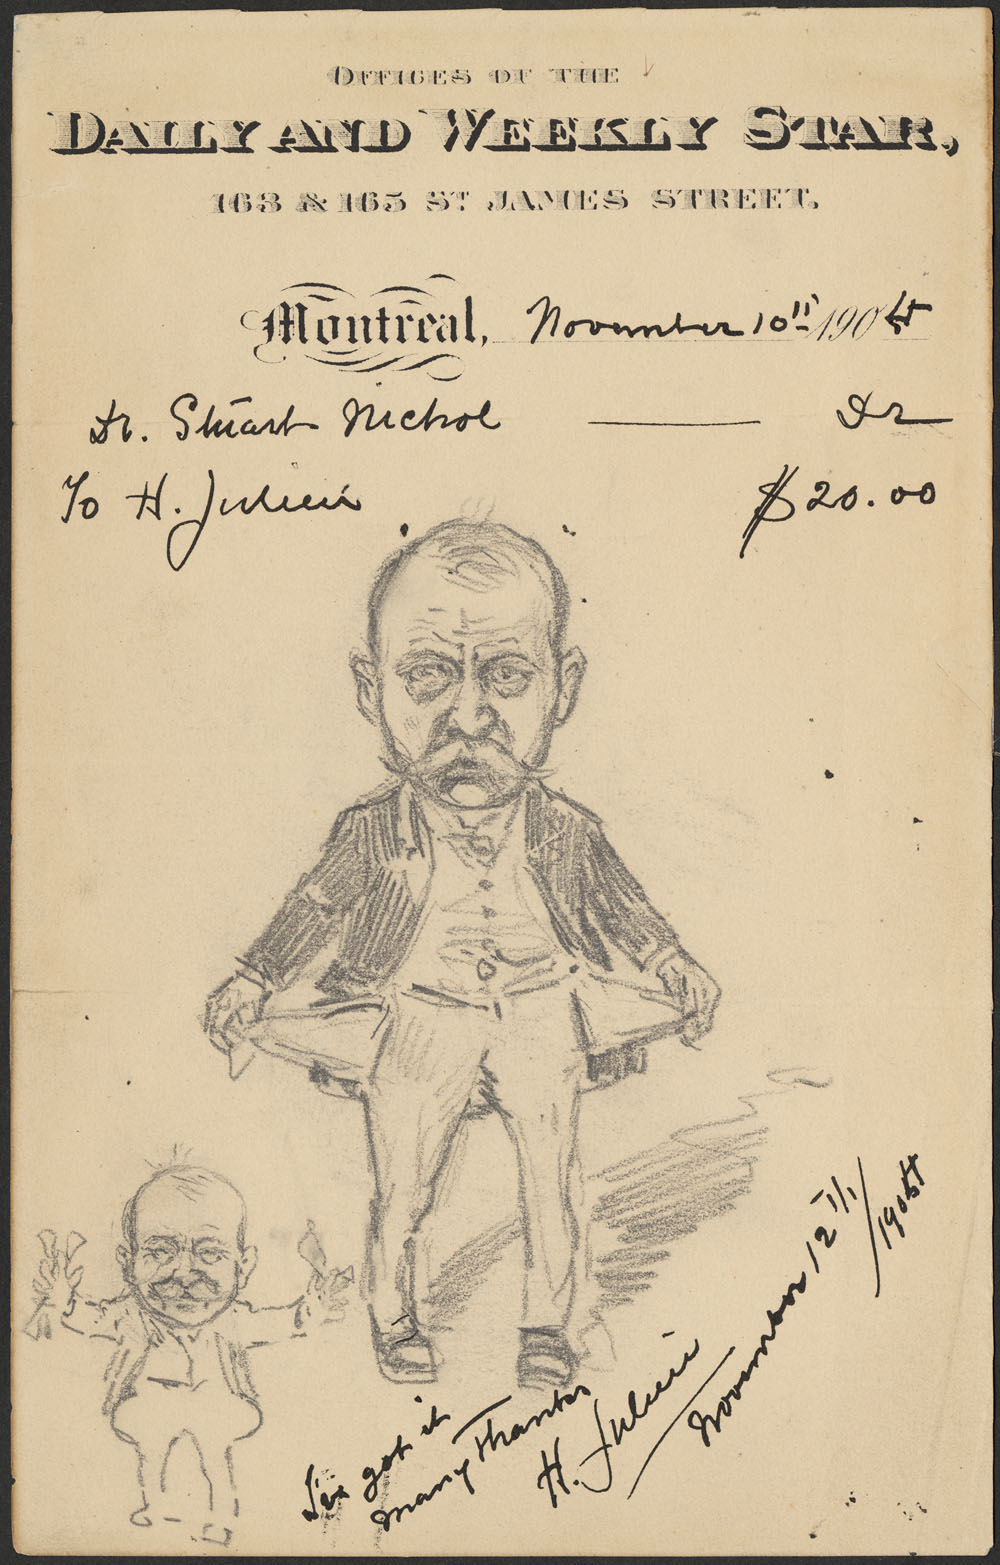 OFFICES OF THE
DAILY AND WEEKLY STAR,
163 & 165 ST JAMES STREET.
Montreal, November 10th 1904
Dr. Stuart Nichol — Dr
To H. Julien $20.00
I'ze got it
many Thanks
H. Julien
November 12th/1904